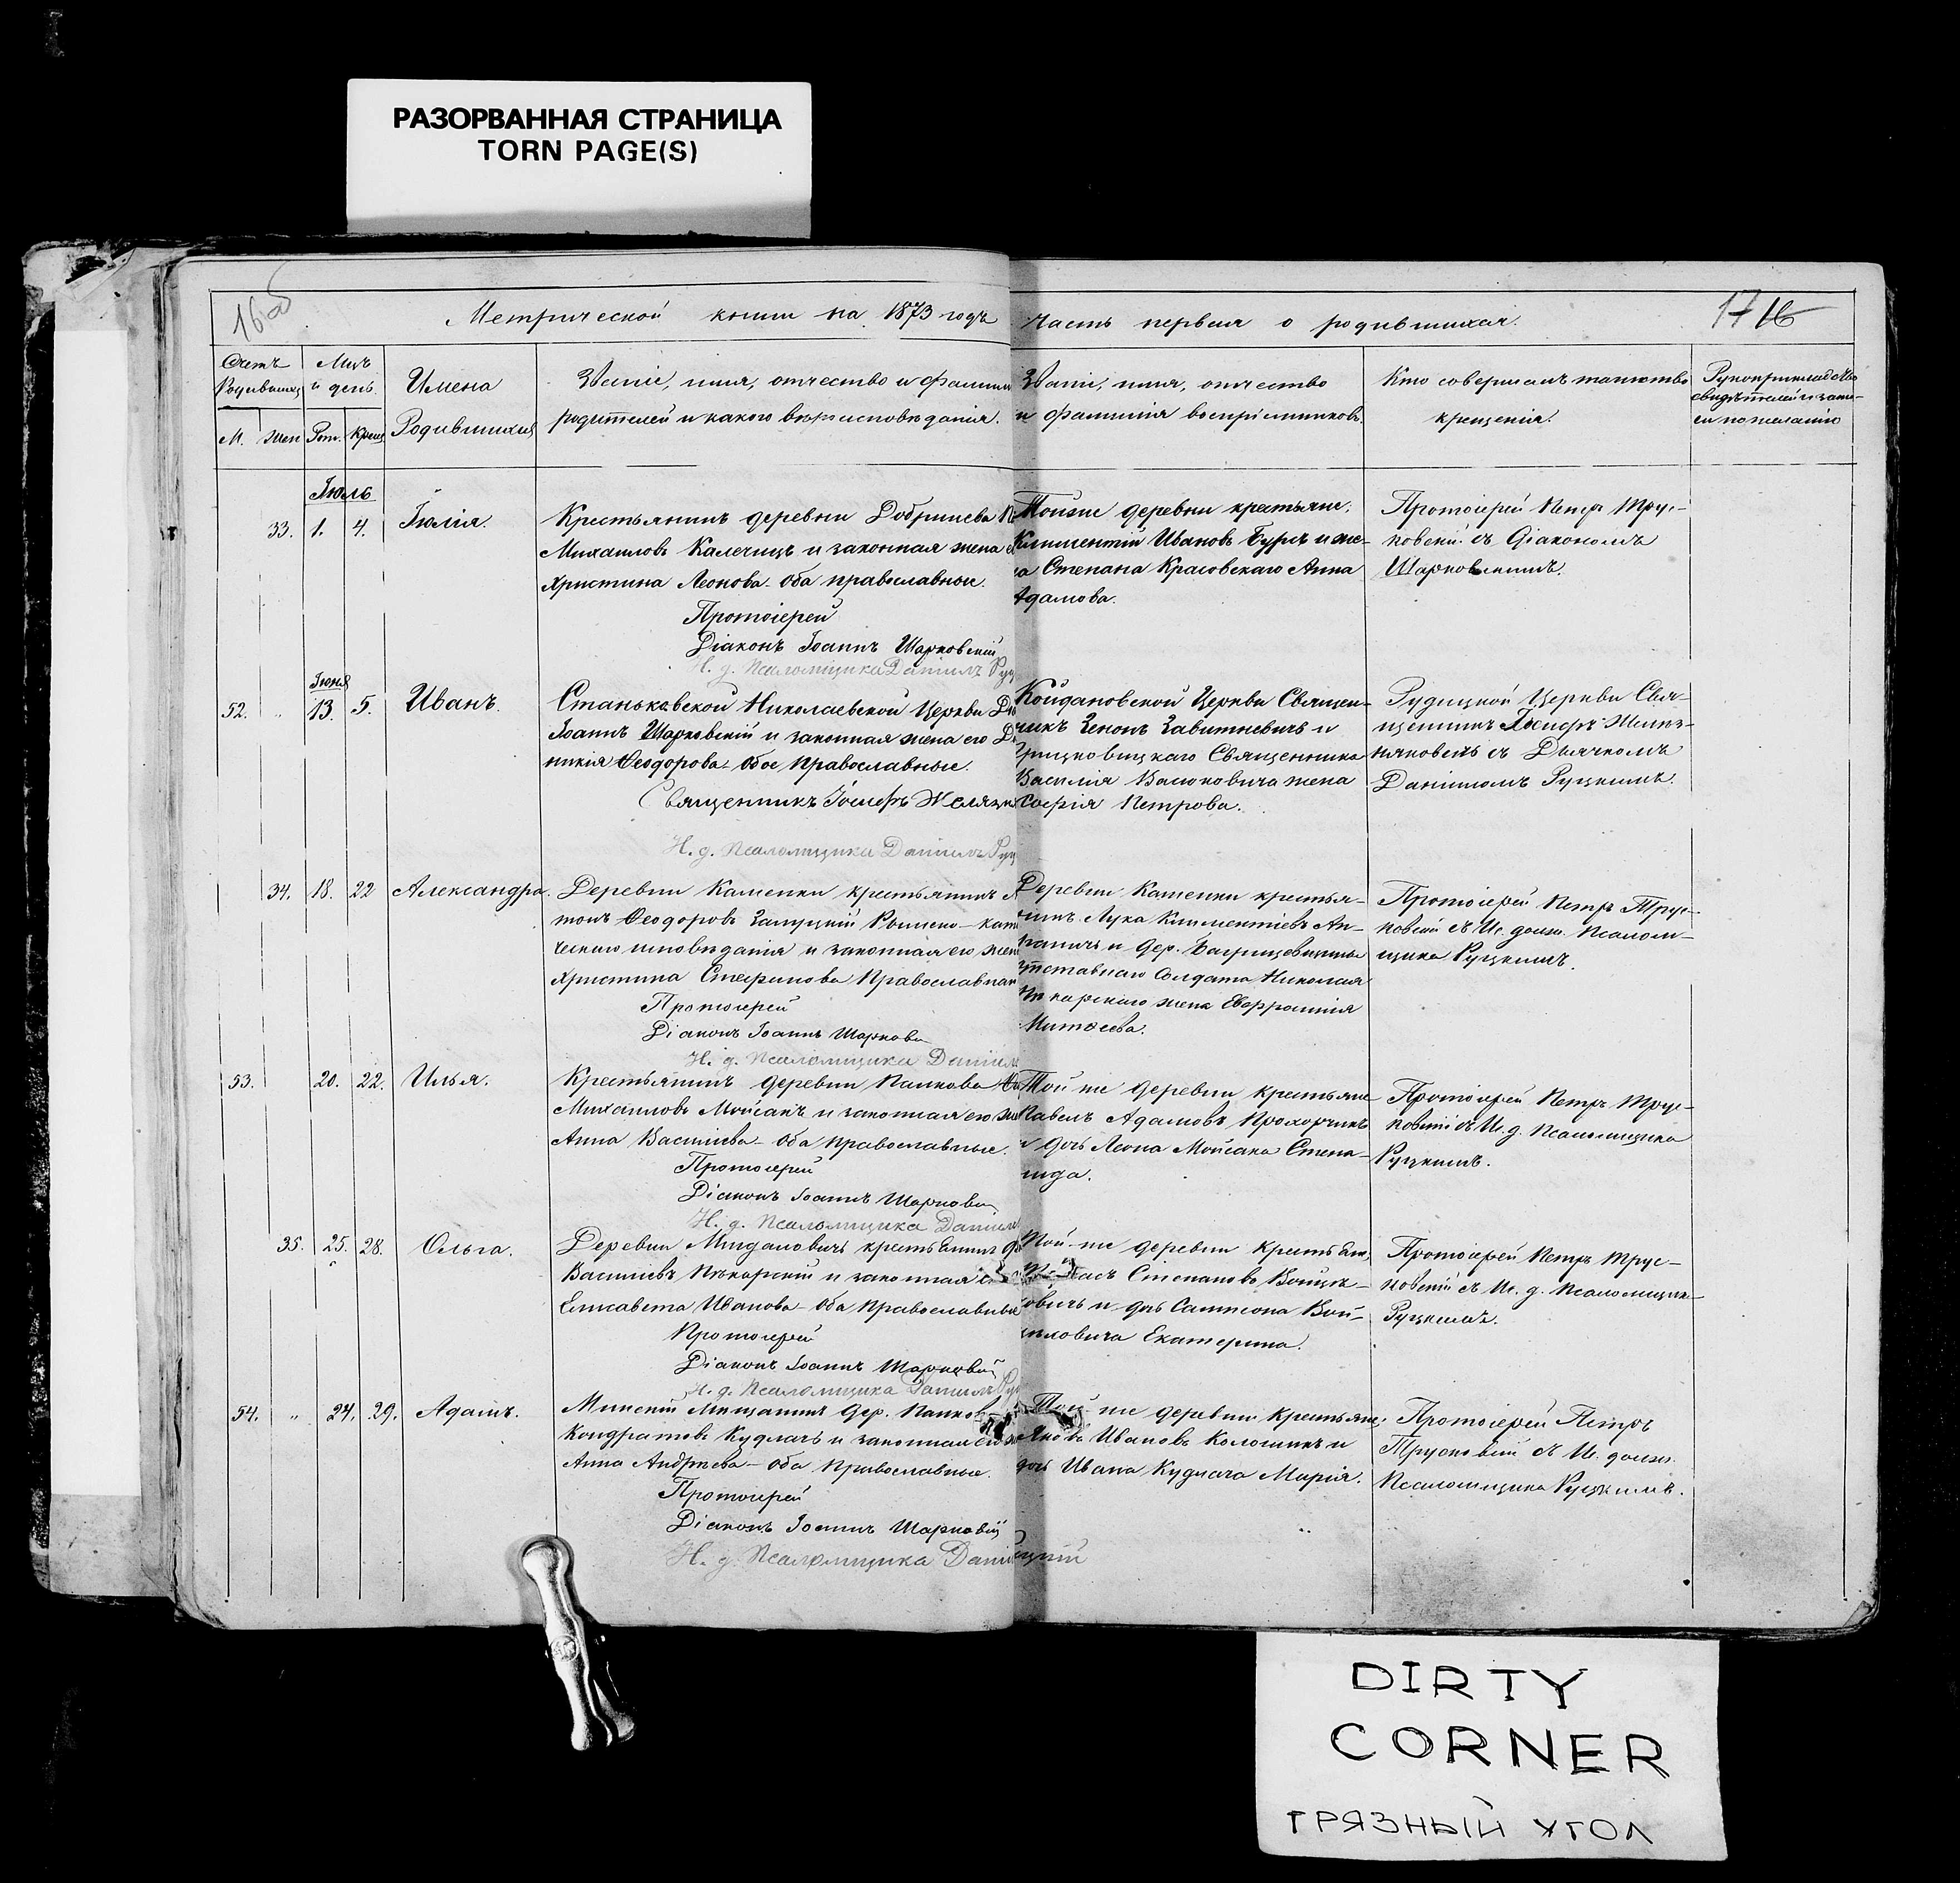 РАЗОРВАННАЯ СТРАНИЦА
TORN PAGE(S)
16об
Метрической книги на 1873 годъ
Часть первая о родившихся.
17 16
Счетъ Родившихся
М. жен
Мцъ и день
Рож. Крещ
Имена
Родившихся
Званіе, имя, отчество и фамилія
родителей и какого вѣроисповѣданія.
Званіе, имя, отчество
и фамилія воспріемниковъ.
Кто совершалъ таинство
крещенія.
Рукоприкладство
свидѣтелей о запи-
си по желанію
Іюль
33. 1. 4. Іюлія.
Крестьянинъ деревни Добринева
Михаиловъ Калечицъ и законная жена
Христина Леонова. Оба православные.
Протоіерей
Діаконъ Іоаннъ Шарковскій
И. д. Псаломщика Даніилъ Руц
Тойже деревни крестьяне:
Климентій Ивановъ Буръ и же-
на Степана Красовскаго Анна
Адамова.
Протоіерей Петръ Трус-
ковскій съ Діакономъ
Шарковскимъ.
Іюня
52. " 13. 5. Иванъ.
Станьковской Николаевской Церкви
Іоаннъ Шарковскій и законная жена его
никія Ѳеодорова – Обое Православные.
Священникъ Іосифъ Желязн
И. д. Псаломщика Даніилъ Руц
Койдановской Церкви Священ-
никъ Зенонъ Завитневичъ и
Грицковицкаго Священника
Василія Васюковича жена
Софія Петрова.
Рудицкой Церкви Свя-
щенникъ Іосифъ Желяз-
няковичъ съ Дьячкомъ
Даніиломъ Руцкимъ.
34. 18. 22 Александра.
Деревни Каменки крестьянинъ
тонъ Ѳеодоровъ Залуцкій Римско-кат
ческаго исповѣданія и законная его жен
Христина Стефанова Православная
Протоіерей
Діаконъ Іоаннъ Шаркови
И. д. Псаломщика Даніил
Деревни Каменки крестья-
нинъ Лука Климентіевъ
и дер.
отставнаго Солдата Николая
жена Евфросинія
Матѳеева.
Протоіерей Петръ Трус-
ковскій съ И. долж. Псалом-
щика Руцкимъ.
53. 20. 22. Илья.
Крестьянинъ деревни Панкова
Михаиловъ Мойсакъ и законная его же
Анна Васильева – Оба православные.
Протоіерей
Діаконъ Іоаннъ Шаркови
И. д. Псаломщика Даніил
Той же деревни крестьяне
Павелъ Адамовъ Прохорчикъ
и дочь Леона Мойсака Степа-
нида.
Протоіерей Петръ Трус-
ковскій съ И. д. Псаломщика
Руцкимъ.
35. 25. 28. Ольга.
Деревни Мигдаловичъ крестьянинъ
Васильевъ Пекарскій и законная
Елисавета Иванова – Оба Православные
Протоіерей
Діаконъ Іоаннъ Шарковскій
И. д. Псаломщика Даніилъ Руц
Той-же деревни крестьяне,
Степановъ Войцех-
овичъ и дочь Самсона Вой-
циловича Екатерина.
Протоіерей Петръ Трус-
ковскій съ И. д. Псаломщика
Руцкимъ.
54. " 24. 29. Адамъ.
Минскій Мѣщанинъ дер. Панков
Кондратовъ Кудлачъ и законная его
Анна Андреева – оба православные.
Протоіерей
Діаконъ Іоаннъ Шарковскій
И. д. Псаломщика Даніи цкій
Той же деревни крестьяне:
Яковъ Ивановъ Колошикъ и
дочь Ивана Кудлача Марія.
Протоіерей Петръ
Трусковскій съ И. долж.
Псаломщика Руцкимъ.
DIRTY
CORNER
ГРЯЗНЫЙ УГОЛ